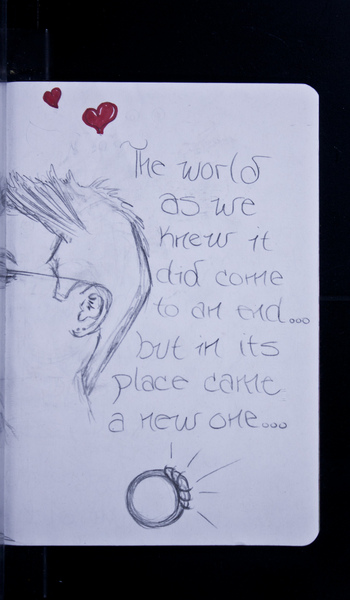 The world
as we
knew it
did come
to an end...
but in its
place came
a new one...